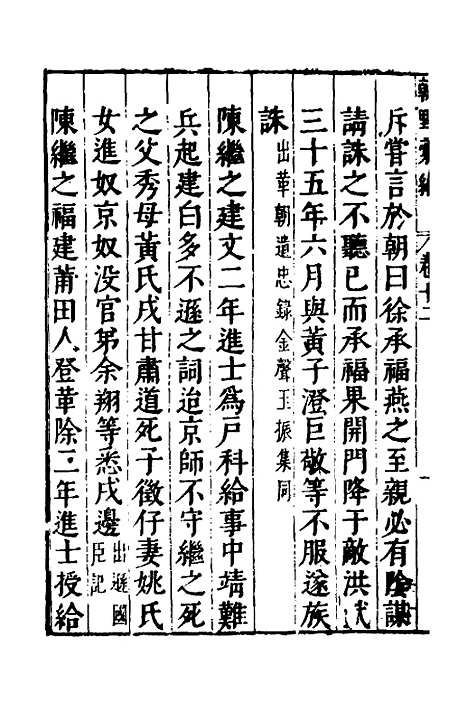 朝野彙編 卷十二
斥嘗言於朝曰徐承福燕之至親必有陰謀
請誅之不聽已而承福果開門降于敵洪武
三十五年六月與黃子澄巨敬等不服遂族
誅出革朝遺忠錄金聲玉振集同
陳繼之建文二年進士爲戸科給事中靖難
兵起建白多不遜之詞迨京師不守繼之死
之父秀母黃氏戍甘肅道死子徵仔妻姚氏
女進奴京奴没官弟余翔等悉戍邊出遜國臣記
陳繼之福建莆田人登革除二年進士授給